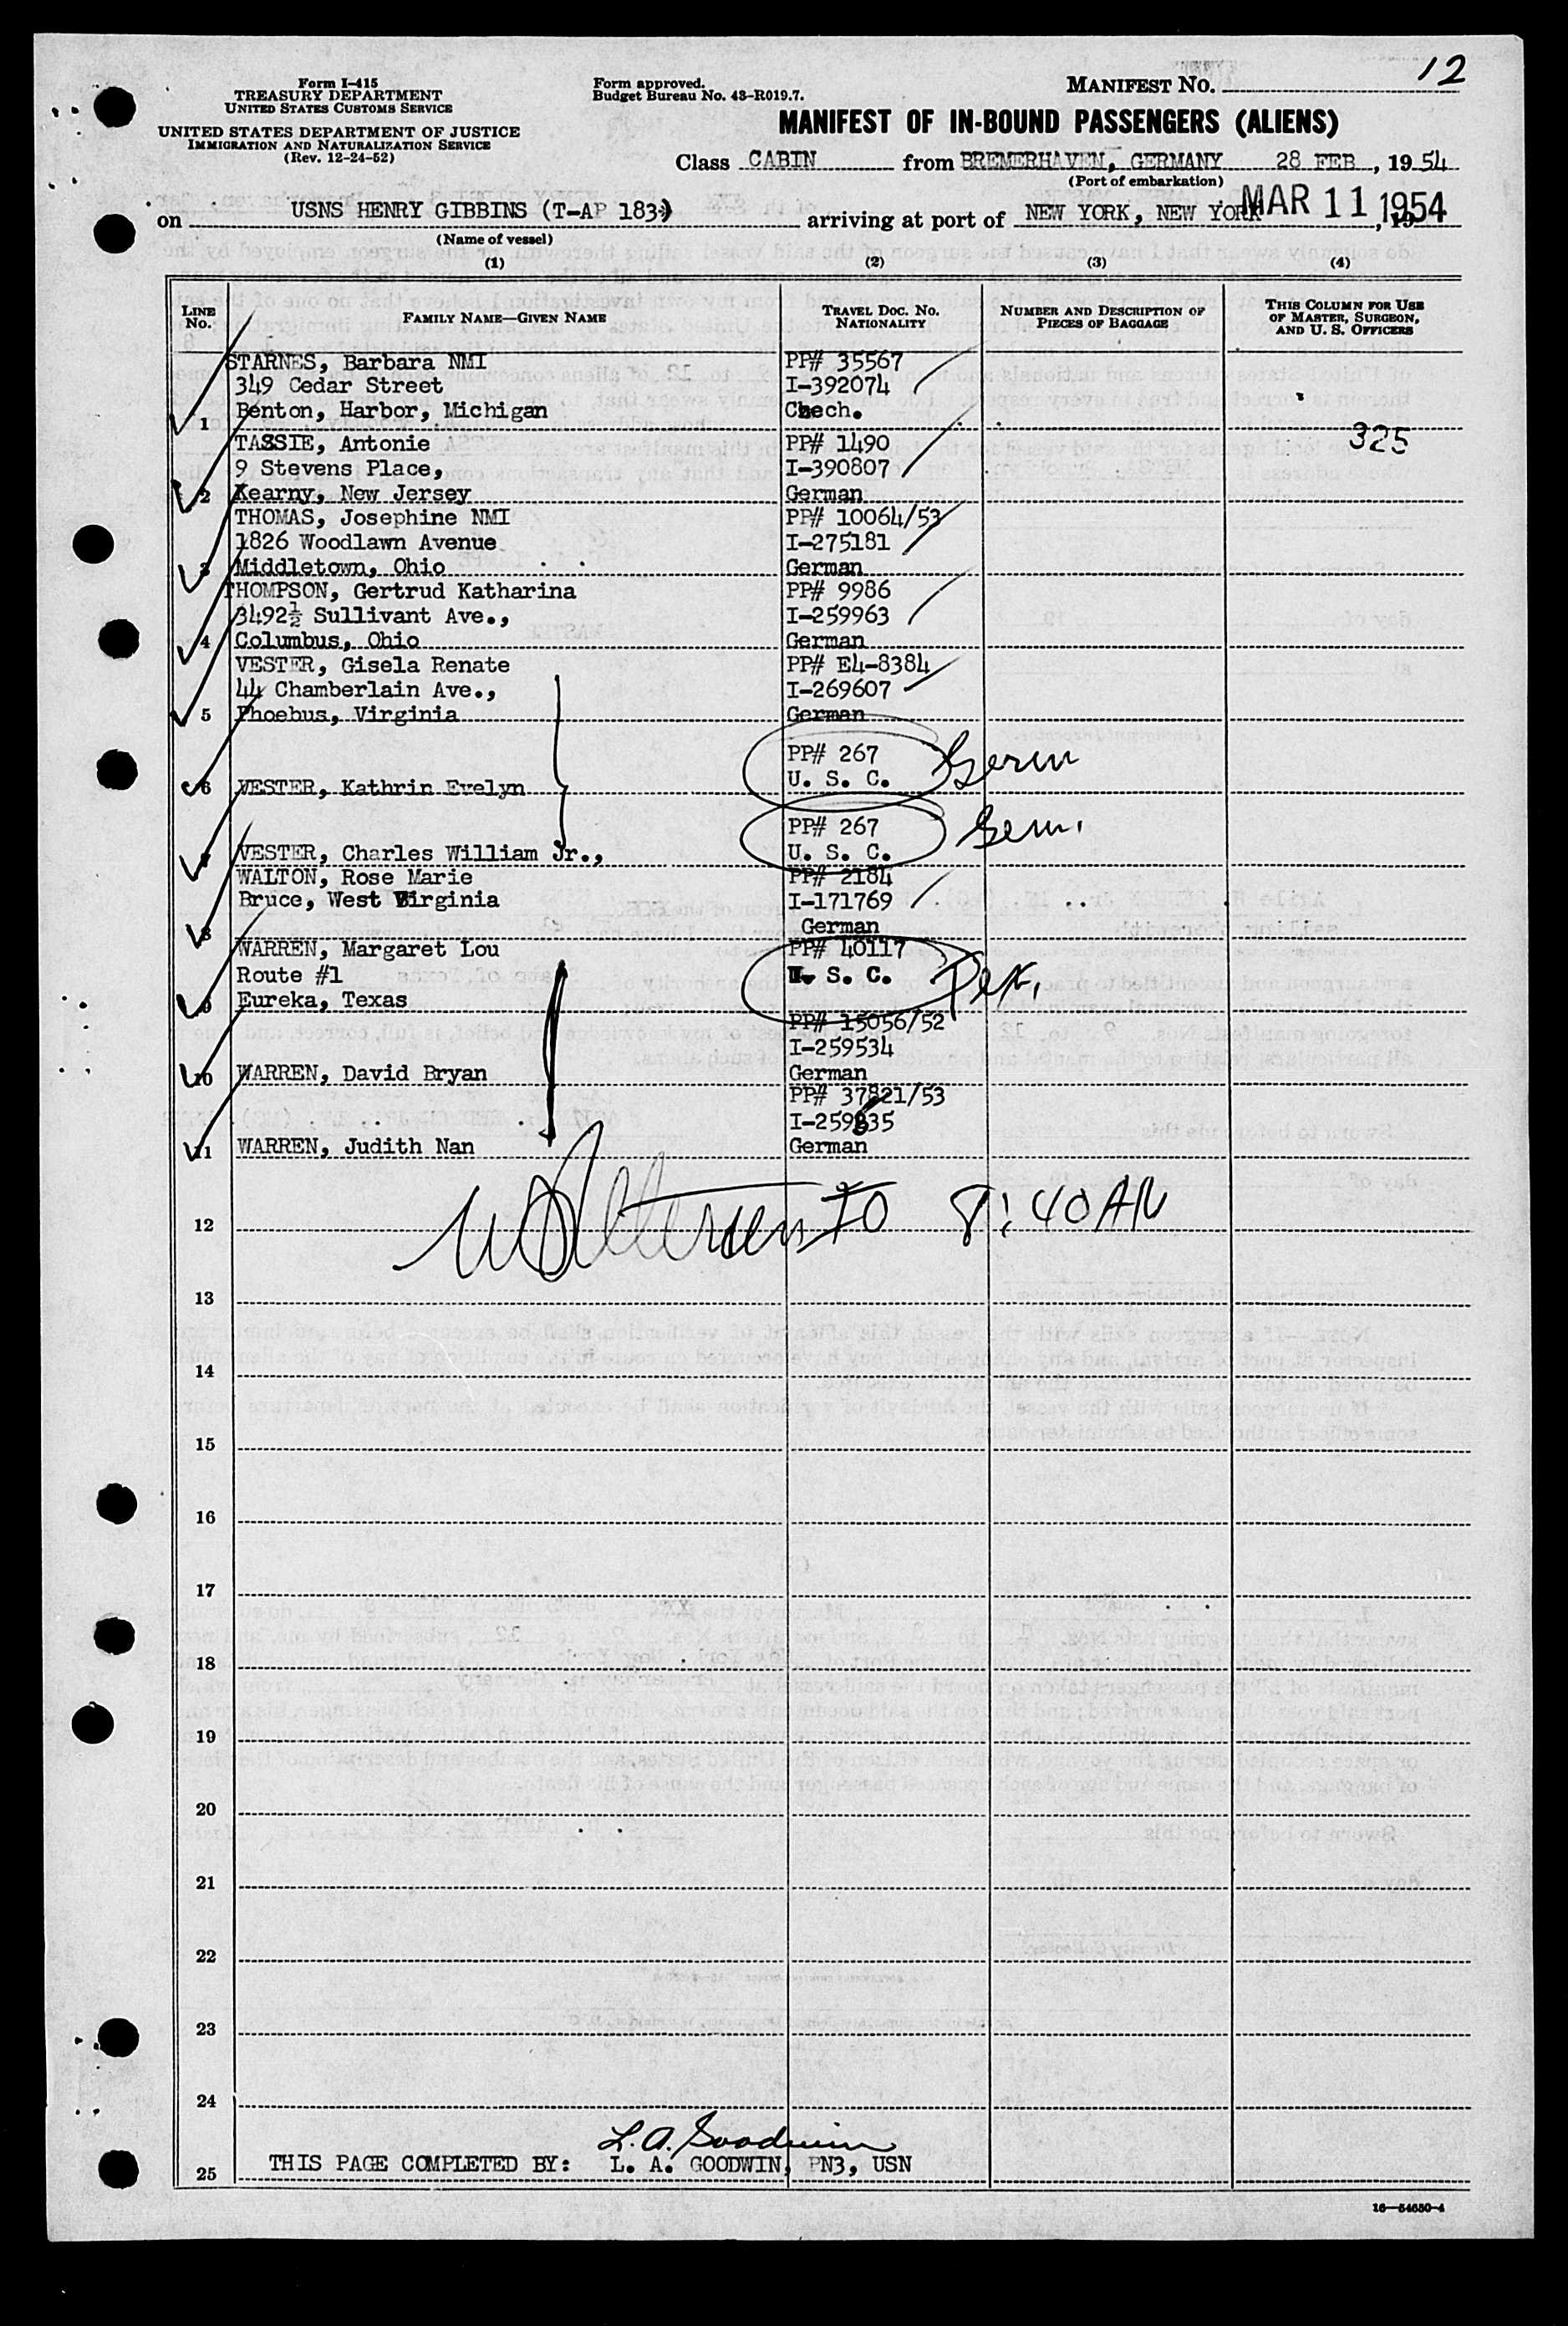 12
Form I-415
TREASURY DEPARTMENT
UNITED STATES CUSTOMS SERVICE
UNITED STATES DEPARTMENT OF JUSTICE
IMMIGRATION AND NATURALIZATION SERVICE
(Rev. 12-24-52)
Form approved.
Budget Bureau No. 43-R019.7.
MANIFEST NO.
MANIFEST OF IN-BOUND PASSENGERS (ALIENS)
Class CABIN from BREMERHAVEN, GERMANY 28 FEB, 1954
(Port of embarkation)
on USNS HENRY GIBBINS (T-AP 183) arriving at port of NEW YORK, NEW YORK MAR 11 1954
(Name of vessel)
(1) (2) (3) (4)
LINE No. FAMILY NAME—GIVEN NAME TRAVEL DOC. NO. NATIONALITY NUMBER AND DESCRIPTION OF PIECES OF BAGGAGE THIS COLUMN FOR USE OF MASTER, SURGEON, AND U. S. OFFICERS
STARNES, Barbara NMI PP# 35567
349 Cedar Street I-392074
1 Benton, Harbor, Michigan Czech.
TASSIE, Antonie PP# 1490 325
9 Stevens Place, I-390807
2 Kearny, New Jersey German
THOMAS, Josephine NMI PP# 10064/53
1826 Woodlawn Avenue I-275181
3 Middletown, Ohio German
THOMPSON, Gertrud Katharina PP# 9986
3492½ Sullivant Ave., I-259963
4 Columbus, Ohio German
VESTER, Gisela Renate PP# E4-8384
44 Chamberlain Ave., I-269607
5 Phoebus, Virginia German
PP# 267 Germ
U. S. C.
6 VESTER, Kathrin Evelyn
PP# 267 Germ.
7 VESTER, Charles William Jr., U. S. C.
WALTON, Rose Marie PP# 2184
Bruce, West Virginia I-171769
8 German
WARREN, Margaret Lou PP# 40117
Route #1 U. S. C.
9 Eureka, Texas
PP# 15056/52
I-259534
10 WARREN, David Bryan German
PP# 37821/53
I-259535
11 WARREN, Judith Nan German
12 IO 8:40 AM
13
14
15
16
17
18
19
20
21
22
23
24
L. A. Goodwin
25 THIS PAGE COMPLETED BY: L. A. GOODWIN, PN3, USN
16—54650-4